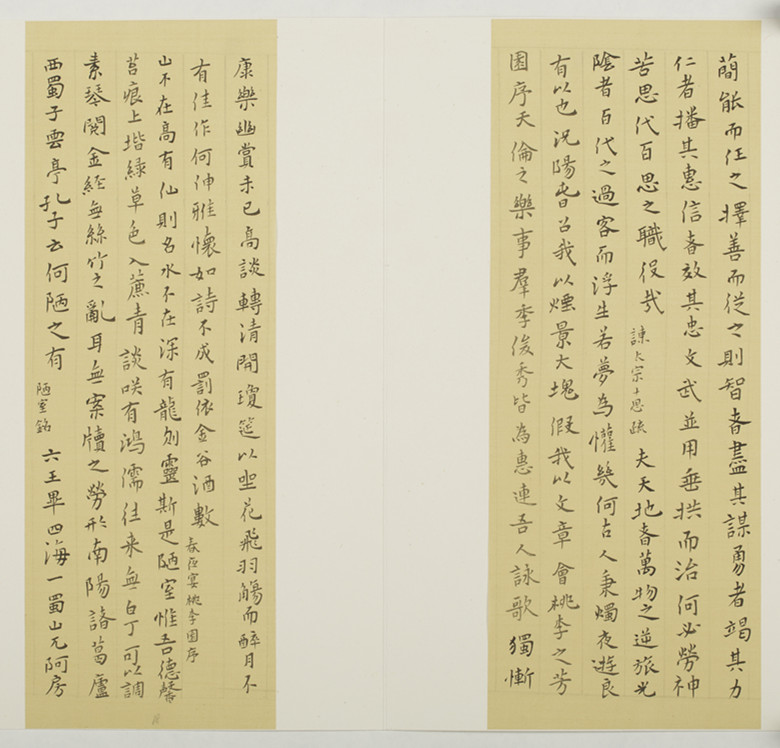 簡能而任之擇善而從之則智者盡其謀勇者竭其力
仁者播其惠信者效其忠文武並用垂拱而治何必勞神
苦思代百思之職役哉 諫太宗十思疏 夫天地者萬物之逆旅光
陰者百代之過客而浮生若夢為懽幾何古人秉燭夜遊良
有以也況陽春召我以煙景大塊假我以文章會桃李之芳
園序天倫之樂事羣季俊秀皆為惠連吾人詠歌獨慚
康樂幽賞未已高談轉清開瓊筵以坐花飛羽觴而醉月不
有佳作何伸雅懷如詩不成罰依金谷酒數 春夜宴桃李園序
山不在高有仙則名水不在深有龍則靈斯是陋室惟吾德馨
苔痕上堦綠草色入簾青談咲有鴻儒往來無白丁可以調
素琴閱金經無絲竹之亂耳無案牘之勞形南陽諸葛廬
西蜀子雲亭孔子云何陋之有 陋室銘 六王畢四海一蜀山兀阿房